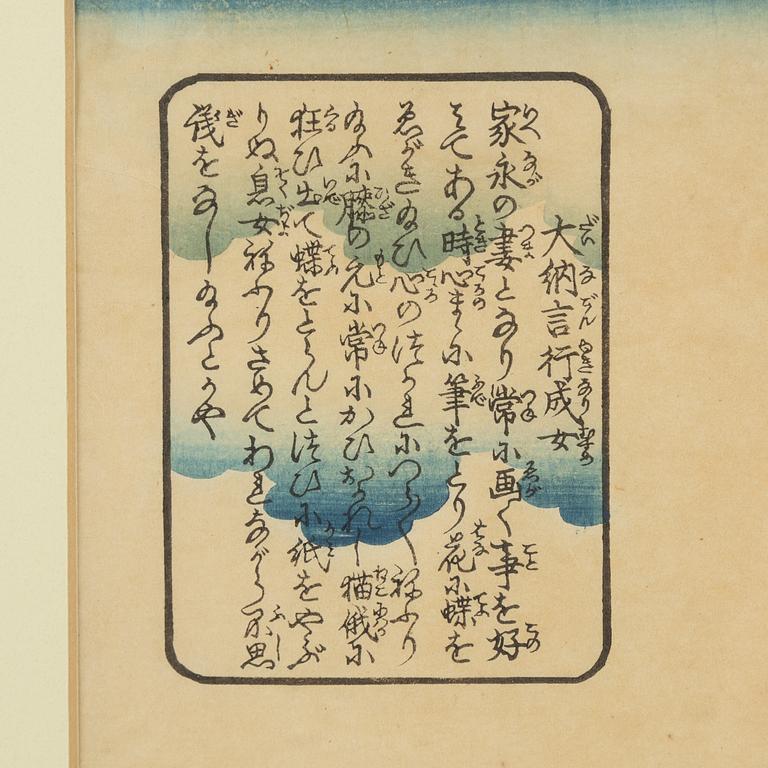 大納言行成女
家永の妻となり常に画く事を好
みてある時心まゝに筆をとり花に蝶を
ゑがきゐひ心のつかれにつらく ねふり
ゐふに膝の元に常にかひおかれし猫俄に
狂ひ出て蝶をとらんとつひに紙をやぶ
りぬ息女ねふりさめてわれながら不思
議をなしゐふとかや